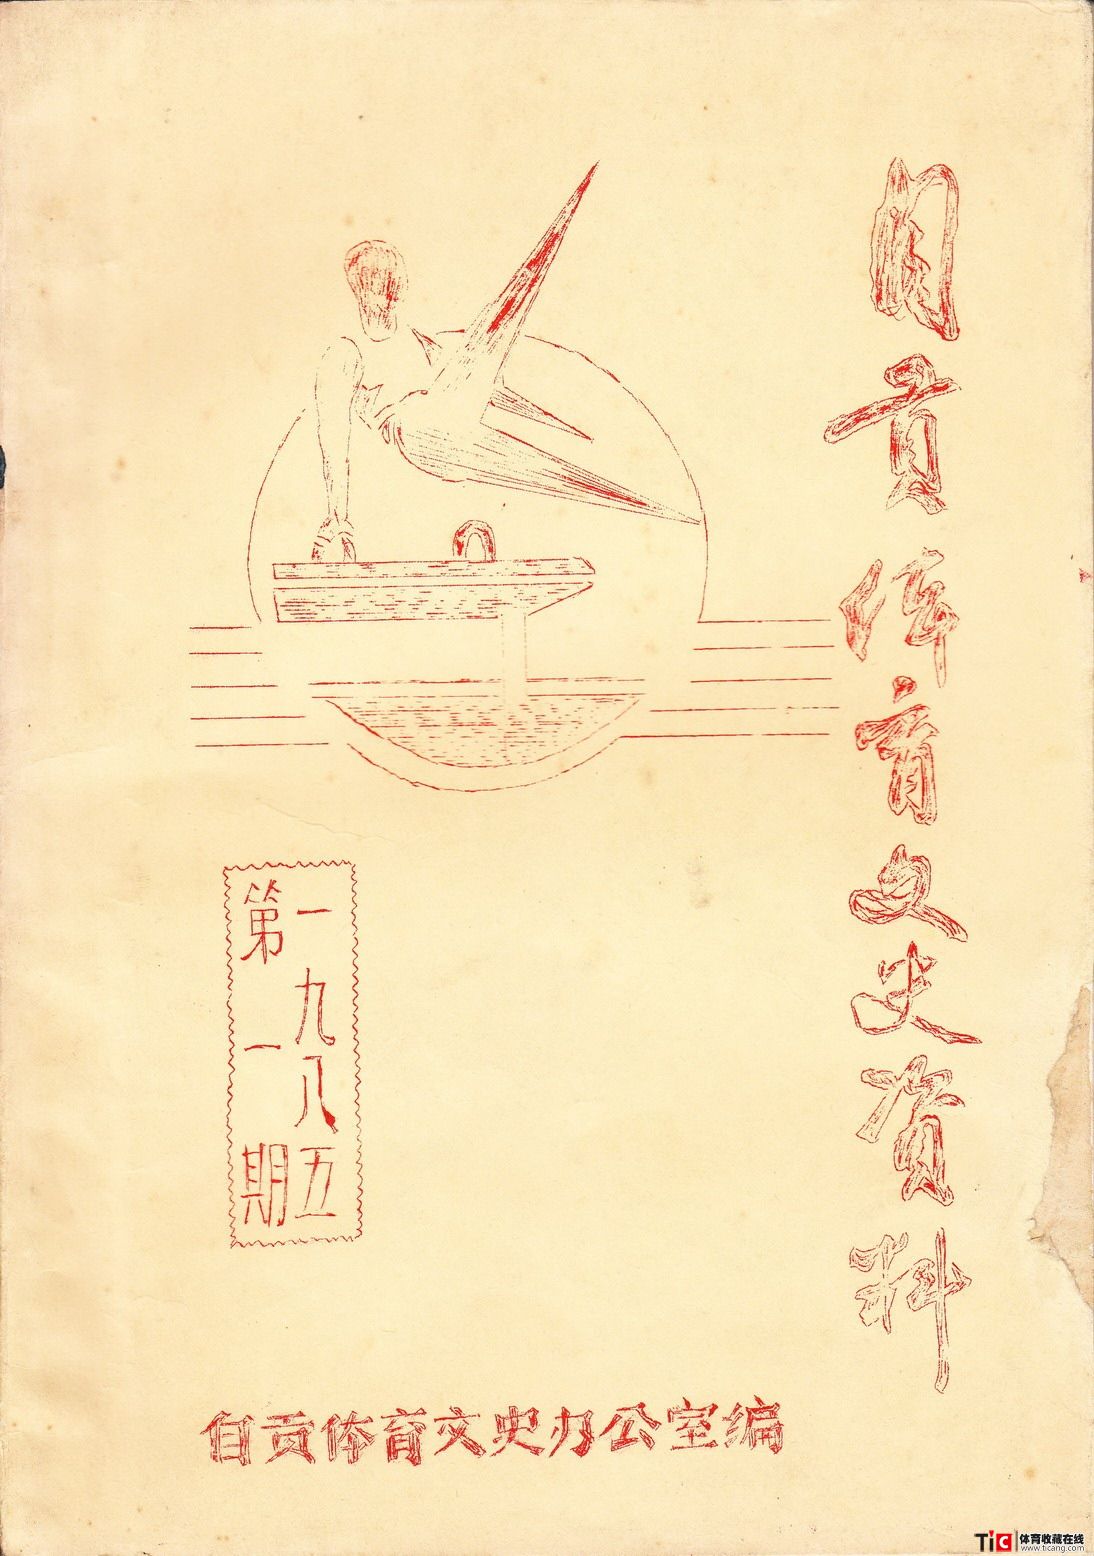 自贡体育文史资料
一九八五
第一期
自贡体育文史办公室编
TiC 体育收藏在线
www.ticang.com